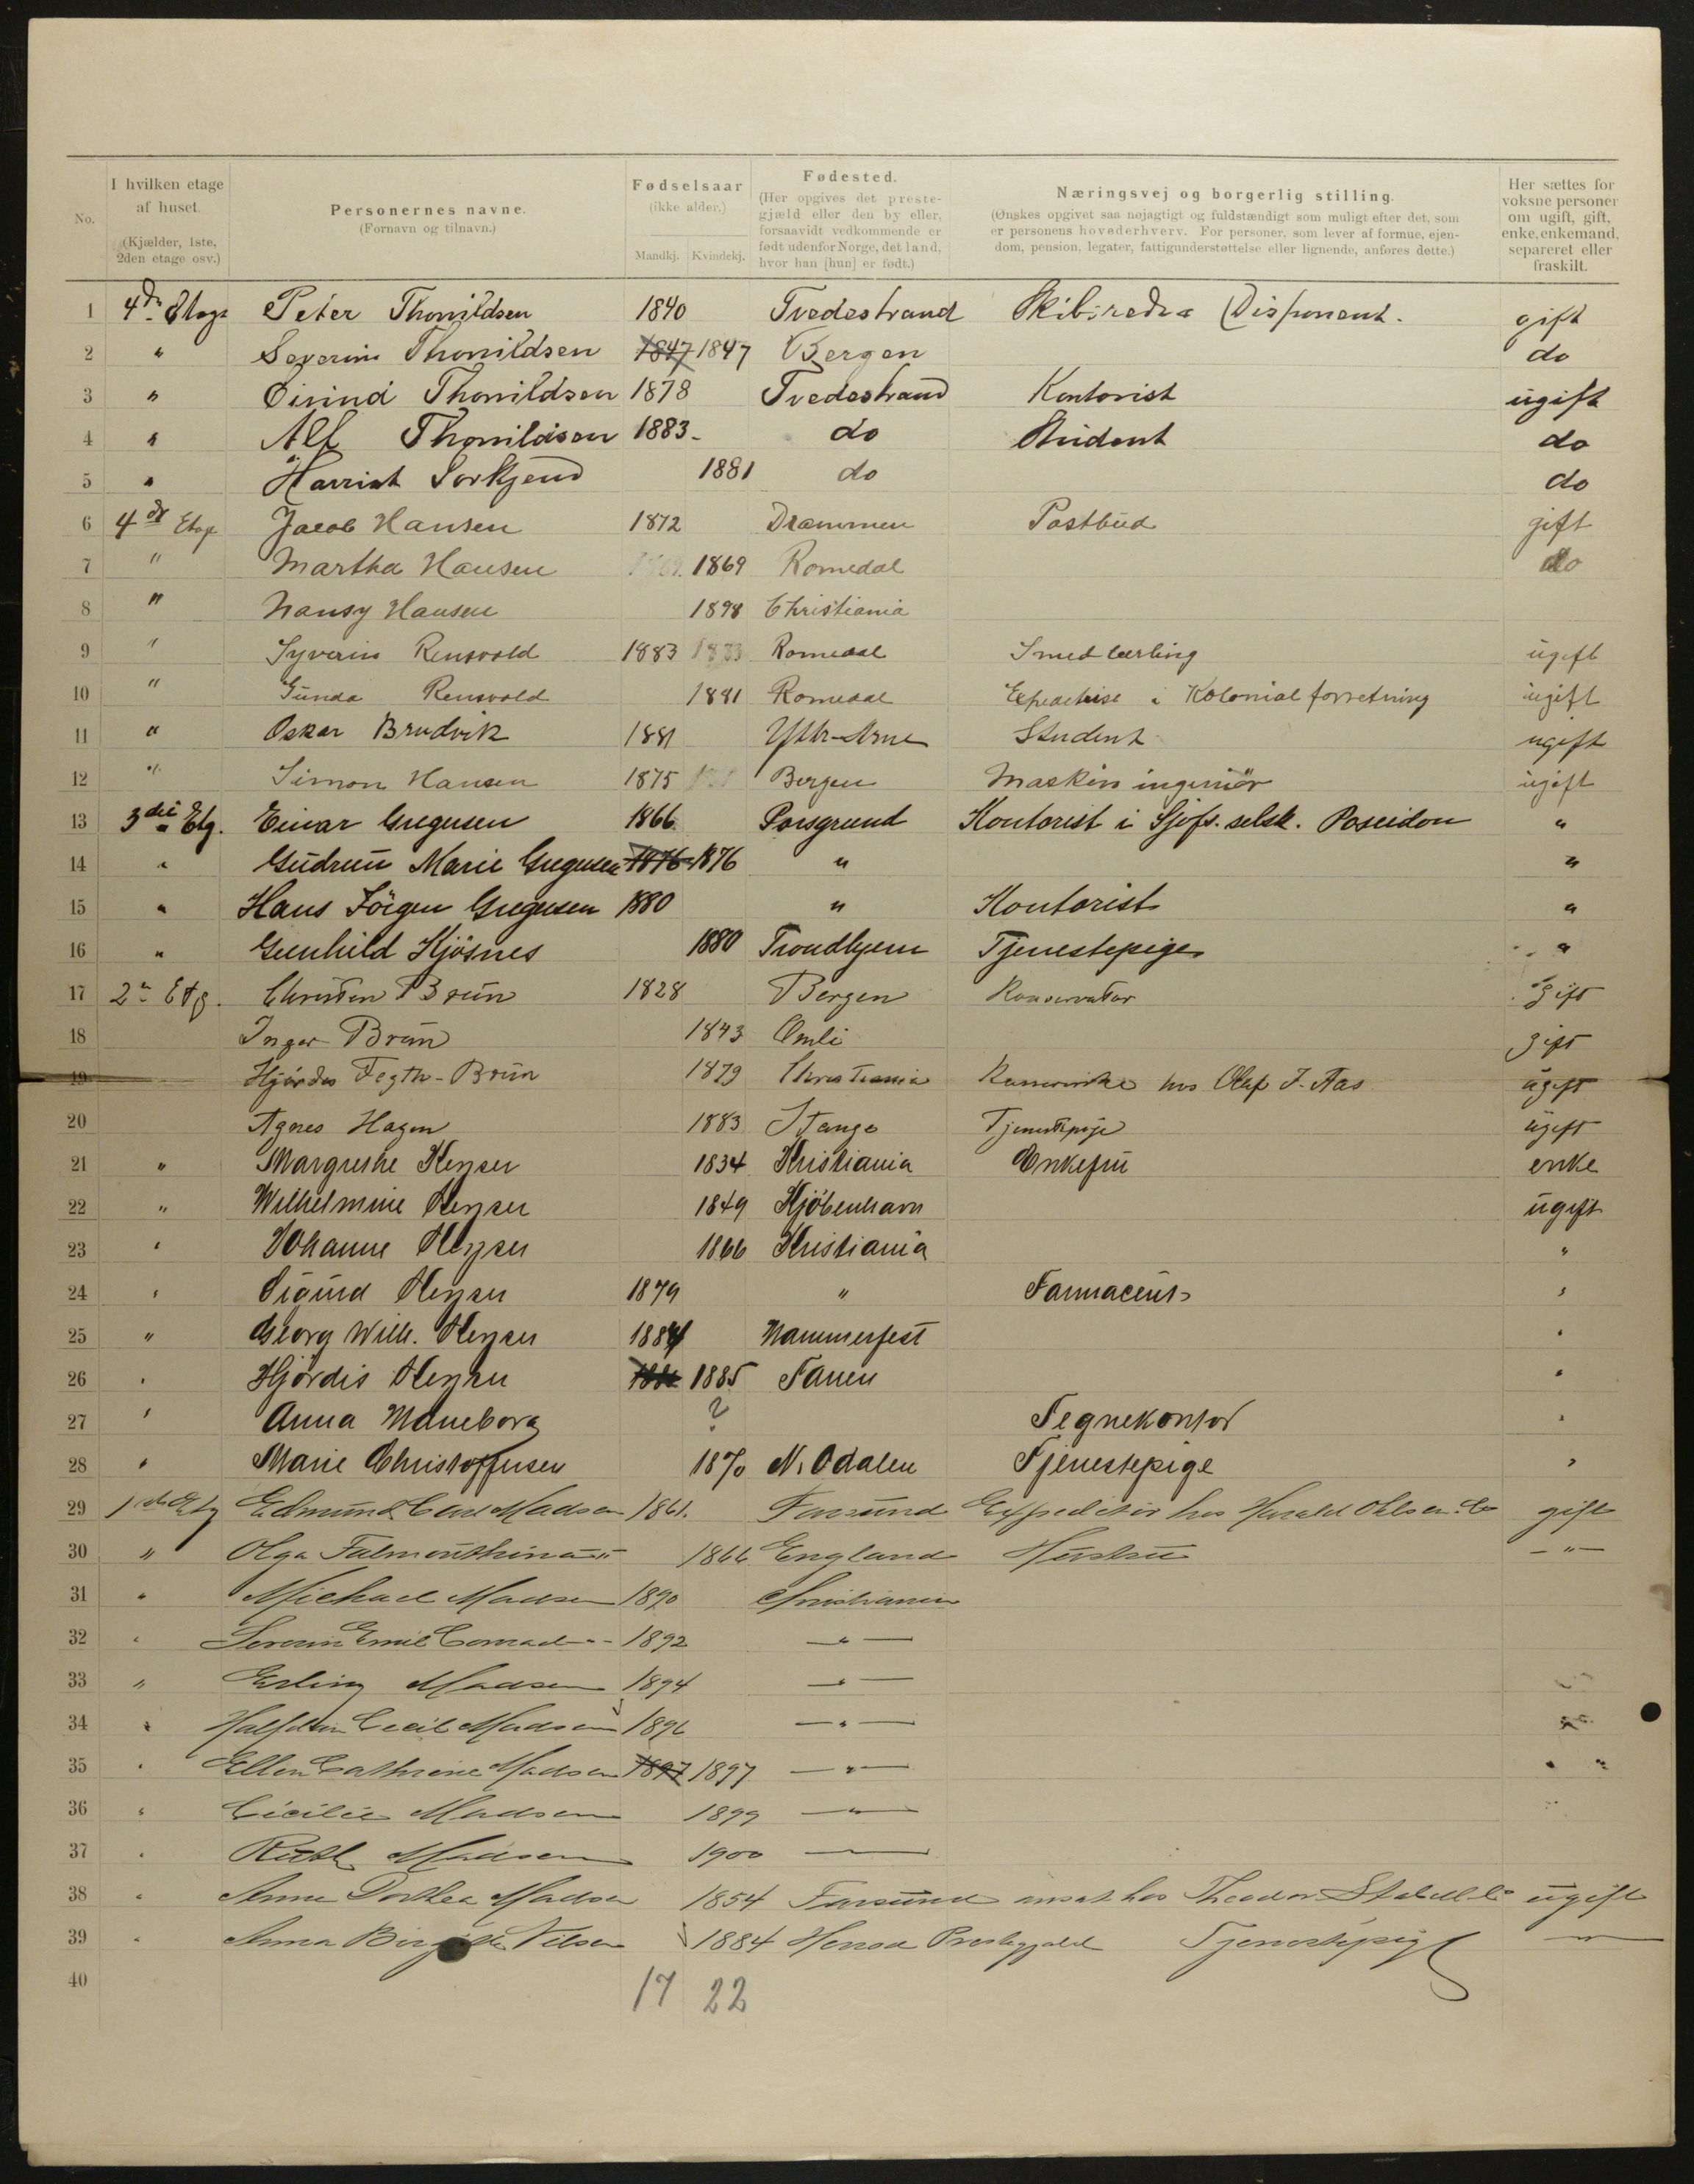 No. I hvilken etage af huset. (Kjælder, 1ste, 2den etage osv.) Personernes navne. (Fornavn og tilnavn.) Fødselsaar (ikke alder.) Mandkj. Kvindekj. Fødested. (Her opgives det prestegjæld eller den by eller, forsaavidt vedkommende er født udenfor Norge, det land, hvor han [hun] er født.) Næringsvej og borgerlig stilling. (Ønskes opgivet saa nøjagtigt og fuldstændigt som muligt efter det, som er personens hovederhverv. For personer, som lever af formue, ejendom, pension, legater, fattigunderstøttelse eller lignende, anføres dette.) Her sættes for voksne personer om ugift, gift, enke, enkemand, separeret eller fraskilt.
1 4de Etage Peter Thorvildsen 1840 Tvedestrand Skibsreder (Disponent. gift
2 " Severin Thorvildsen 1847 1847 Bergen do
3 " Eivind Thorvildsen 1878 Tvedestrand Kontorist ugift
4 " Alf Thorvildsen 1883 do Student do
5 " Harriet 1881 do do
6 4de Etag Jacob Hansen 1872 Drammen Postbud gift
7 " Martha Hansen 1869 Romedal do
8 " Nansy Hansen 1898 Christiania
9 " Syverin Rensvold 1883 1883 Romedal Smedlærling ugift
10 " Gunda Rensvold 1881 Romedal i Kolonialforretning ugift
11 " Oskar Brudvik 1881 Ytre-Arne Student ugift
12 " Simon Hansen 1875 Bergen Maskiningeniør ugift
13 3die Etg. Einar Gregusen 1866 Porsgrund Kontorist i Sjøfs. selsk. Poseidon "
14 " Gudrun Marie Gregusen 1876 1876 " "
15 " Hans Jörgen Gregusen 1880 " Kontorist "
16 " Gunhild Kjösnes 1880 Trondhjem Tjenestepige "
17 2n Etg. Christen Brun 1828 Bergen Konservator Gift
18 Inger Brun 1843 Omli gift
19 Hjördis Fegth-Brun 1879 Christiania hos Olaf J. Aas ugift
20 Agnes Hagen 1883 Stange Tjenestepige ugift
21 " Margrethe Keyser 1834 Kristiania Enkefru enke
22 " Wilhelmine Keyser 1849 Kjöbenhavn ugift
23 " Johanne Keyser 1866 Kristiania "
24 " Sigurd Keyser 1879 " Farmaceut "
25 " Georg Wilh. Keyser 1884 Hammerfest "
26 " Hjördis Keyser 1885 Fanen "
27 " Anna Maneborg ? Tegnekontor "
28 " Marie Christoffersen 1870 N. Odalen Tjenestepige "
29 1ste Etg Edmund Carl Madsen 1861. Farsund Expeditør hos Harald Ohlsen & Co gift
30 " Olga Falmouthina " 1866 England Hustru — " —
31 " Michael Madsen 1890 Christiania
32 " Severin Emil Conrad " 1892 — " —
33 " Erling Madsen 1894 — " —
34 " Halfdan Cecil Madsen 1896 — " —
35 " Ellen Cathrine Madsen 1897 1897 — " —
36 " Cicilie Madsen 1899 — " —
37 " Ruth Madsen 1900 —
38 " Anna Dorthea Madsen 1854 Farsund ansat hos Theodor ugift
39 " Anna Nilsen 1884 Prestegjeld Tjenestepige — " —
40
17 22